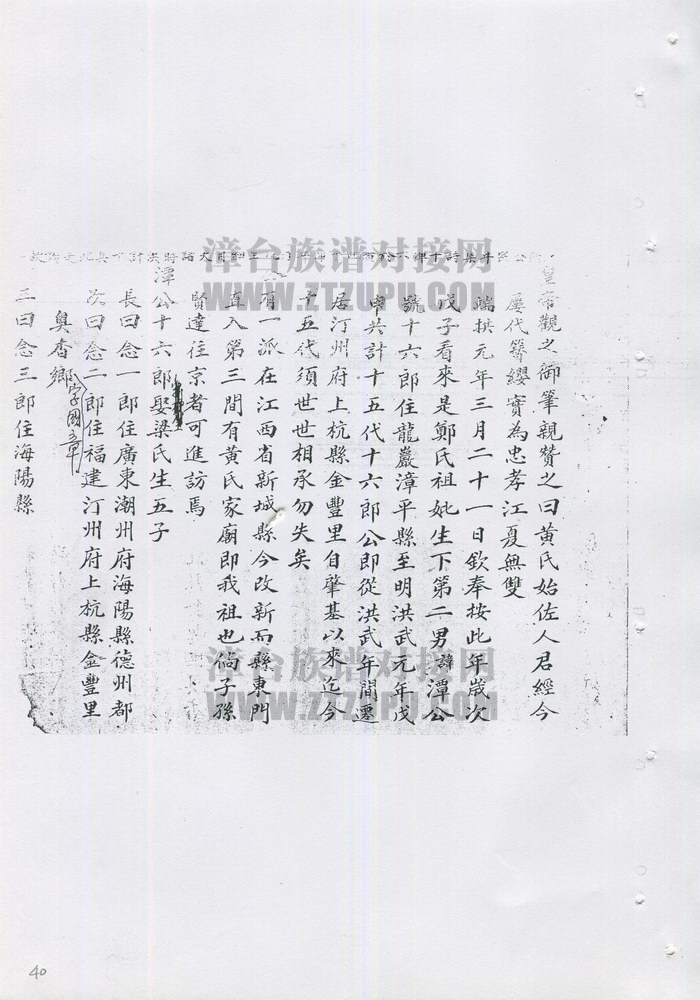 皇帝觀之御筆親贊之曰黃氏始佐人君經今
屢代簪纓實為忠孝江夏無雙
端拱元年三月二十一日欽奉按此年歲次
戊子看來是鄭氏祖妣生下第二男諱潭公
號十六郎住龍巖漳平縣至明洪武元年戊
申共計十五代十六郎公即從洪武年間遷
居汀州府上杭縣金豐里自肇基以來迄今
十五代須世世相承勿失矣
有一派在江西省新城縣今改新而縣東門
直入第三間有黃氏家廟即我祖也倘子孫
賢達往京者可進訪焉
潭公十六郎娶梁氏生五子
長曰念一郎住廣東潮州府海陽縣德州都
次曰念二郎字國章住福建汀州府上杭縣金豐里
奧杳鄉
三曰念三郎住海陽縣
漳台族谱对接网
WWW.ZTZUPU.COM
漳台族谱对接网
WWW.ZTZUPU.COM
40